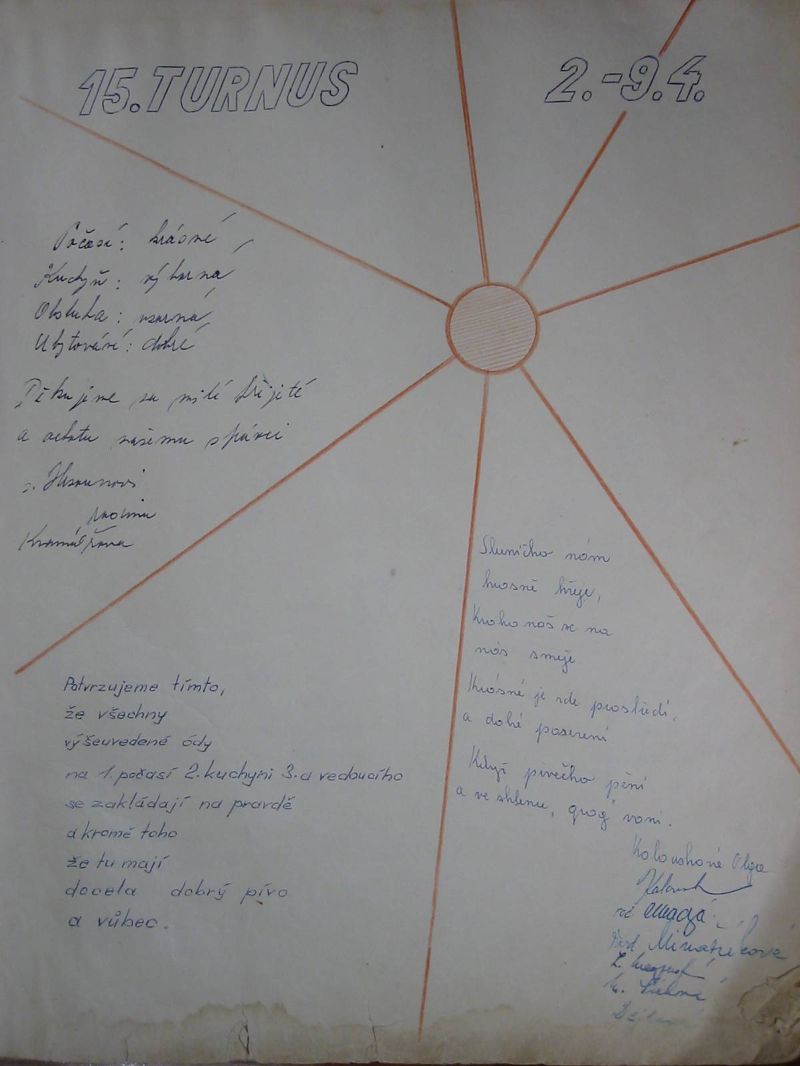 15. TURNUS
2.-9.4.
Počasí: krásné
Kuchyň: výborná
Obsluha: vzorná
Ubytování: dobré
Děkujeme za milé přijetí
a ochotu našemu správci
s.
Sluníčko nám
krásně hřeje,
Krakonoš se na
nás směje
Krásné je zde prostředí,
a dobré posezení
Když pivečko pění
a ve sklenu, grog voní.
Potvrzujeme tímto,
že všechny
výšeuvedené ódy
na 1. počasí 2. kuchyni 3. a vedoucího
se zakládají na pravdě
a kromě toho
že tu mají
docela dobrý pívo
a vůbec.
Olga